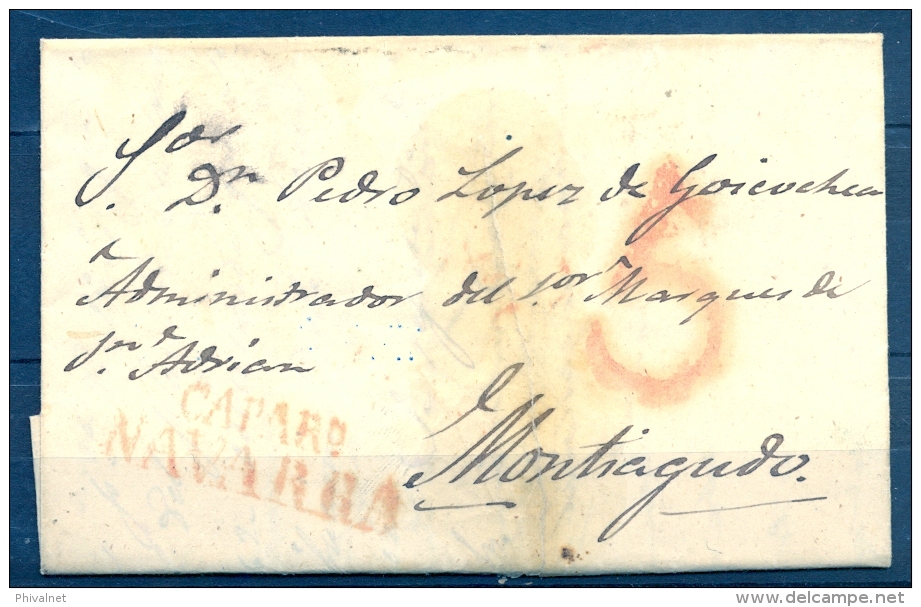 Sor
S. Dn. Pedro Lopez de Goicochea
Administrador del Sor. Marques de
Sn. Adrian
CAPARO
NAVARRA
5
Montiagudo.
Phivalnet